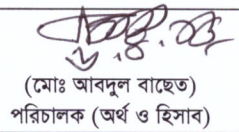 (মোঃ আবদুল বাছেত)
পরিচালক (অর্থ ও হিসাব)